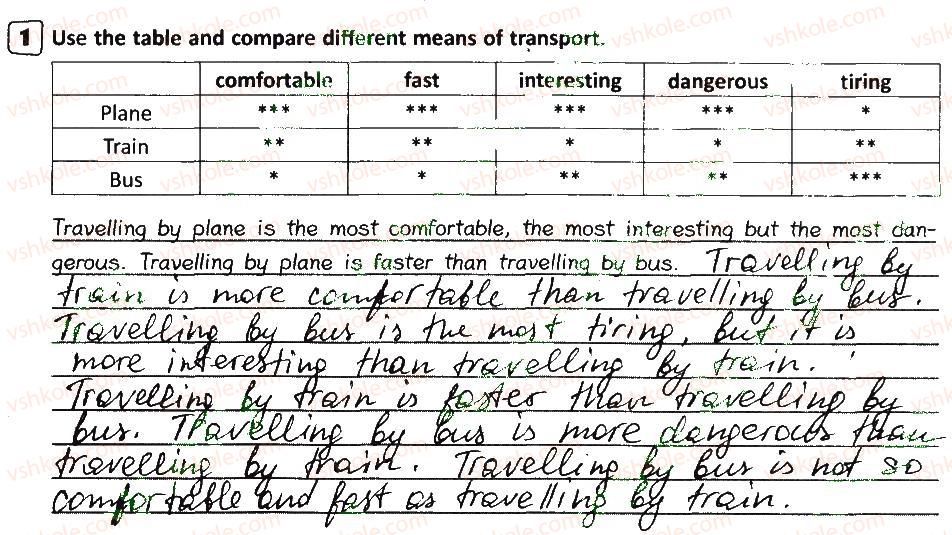 1 Use the table and compare different means of transport.
comfortable fast interesting dangerous tiring
Plane *** *** *** *** *
Train ** ** * * **
Bus * * ** ** ***
Travelling by plane is the most comfortable, the most interesting but the most dan-
gerous. Travelling by plane is faster than travelling by bus. Travelling by
train is more comfortable than travelling by bus.
Travelling by bus is the most tiring, but it is
more interesting than travelling by train.
Travelling by train is faster than travelling by
bus. Travelling by bus is more dangerous than
travelling by train. Travelling by bus is not so
comfortable and fast as travelling by train.